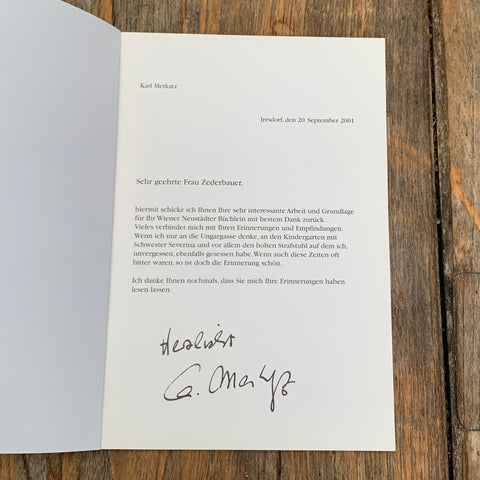 Karl Merkatz
Irrsdorf, den 20. September 2001
Sehr geehrte Frau Zederbauer,
hiermit schicke ich Ihnen Ihre sehr interessante Arbeit und Grundlage
für Ihr Wiener Neustädter Büchlein mit bestem Dank zurück.
Vieles verbindet mich mit Ihren Erinnerungen und Empfindungen.
Wenn ich nur an die Ungargasse denke, an den Kindergarten mit
Schwester Severina und vor allem den hohen Strafstuhl auf dem ich,
unvergessen, ebenfalls gesessen habe. Wenn auch diese Zeiten oft
bitter waren, so ist doch die Erinnerung schön.
Ich danke Ihnen nochmals, dass Sie mich Ihre Erinnerungen haben
lesen lassen.
Herzlichst
K. Merkatz